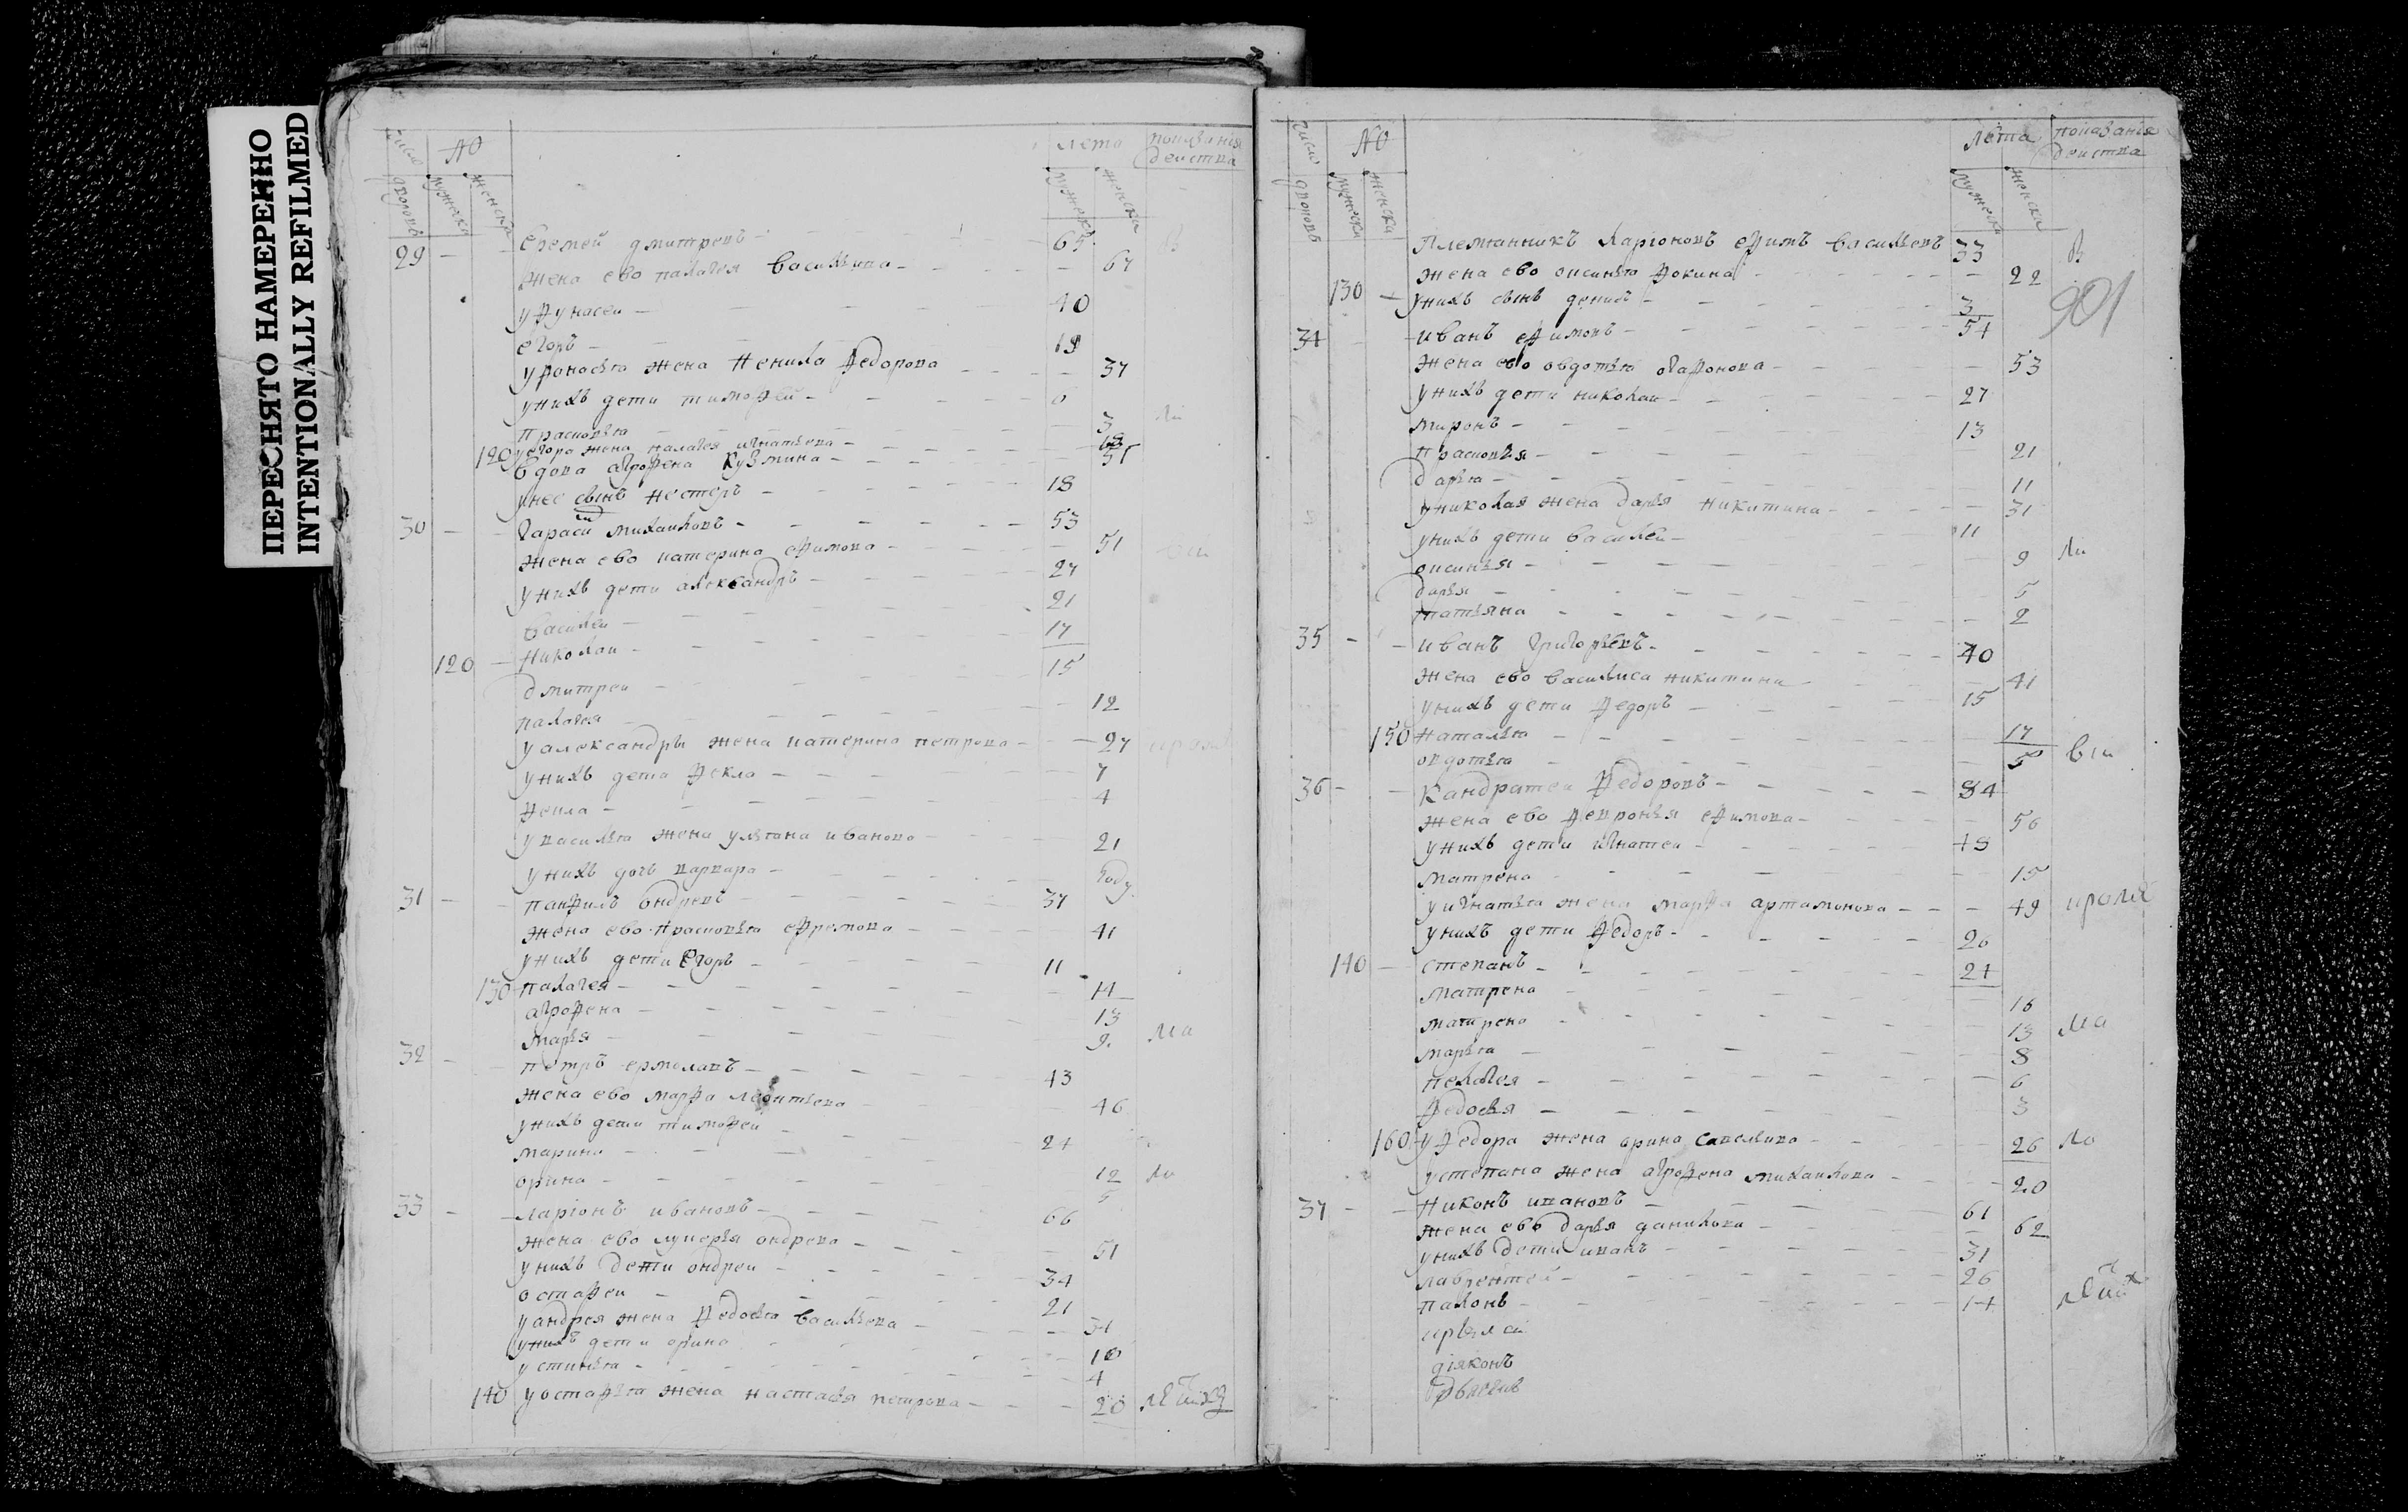 ПЕРЕСНЯТО НАМЕРЕННО
INTENTIONALLY REFILMED
число дворовъ
№
мужеска
женска
лета
мужеска
женска
показания действа
29 Еремей дмитревъ 65
жена ево палагея василъева 67
у Афунасеи 40
егоръ 19
жена Ненила Федорова 37
унихъ дети тимофей 6
прасковья 3
120 у егора жена палагея игнатьева 18
вдова агрофена Кузмина 51
унее сынъ нестеръ 18
30 Гараси михаиловъ 53
жена ево катерина ефимова 51
унихъ дети александръ 27
василеи 21
120 Николаи 17
дмитреи 15
палагея 12
у александры жена катерина петрова 27
унихъ дети Фекла 7
Фекла 4
у василья жена ульяна иванова 21
унихъ дочь варвара году
31 панфилъ Ондревъ 37
жена ево прасковья ефремова 41
унихъ дети Егоръ 11
130 палагея 14
агрофена 13
марья 9
32 петръ ермолавъ 43
жена ево марфа леонтьева 46
унихъ дети тимофеи 24
марина 12
орина 5
33 ларіонъ ивановъ 66
жена ево лукерья ондрева 51
унихъ дети ондреи 34
остафеи 21
у андрея жена Федосья василъева 31
унихъ дети орина 10
устинья 4
140 у остафья жена настасья петрова 20
число дворовъ
№
мужеска
женска
лета
мужеска
женска
показания действа
901
Племянникъ ларіоновъ ефимъ василъевъ 33
жена ево оксинья Фокина 22
130 унихъ сынъ денисъ 3
34 иванъ ефимовъ 54
жена ево овдотья агафонова 53
унихъ дети николаи 27
миронъ 13
прасковья 21
дарья 11
у николая жена дарья никитина 31
унихъ дети василеи 11
оксинья 9
дарья 5
татьяна 2
35 иванъ григорьевъ 40
жена ево василиса никитина 41
унихъ дети Федоръ 15
150 наталья 17
овдотья 5
36 Кандратеи Федоровъ 84
жена ево Февронья ефимова 56
унихъ дети игнатеи 48
матрена 15
у игнатья жена марфа артамонова 49
унихъ дети Федоръ 26
140 степанъ 24
матрена 16
матрена 13
марья 8
пелагея 6
Федосья 3
160 у Федора жена орина савелъива 26
у степана жена агрофена михаилова 20
37 Никонъ ивановъ 61
жена ево дарья данилова 62
унихъ дети иванъ 31
лаврентеи 26
14
діяконъ